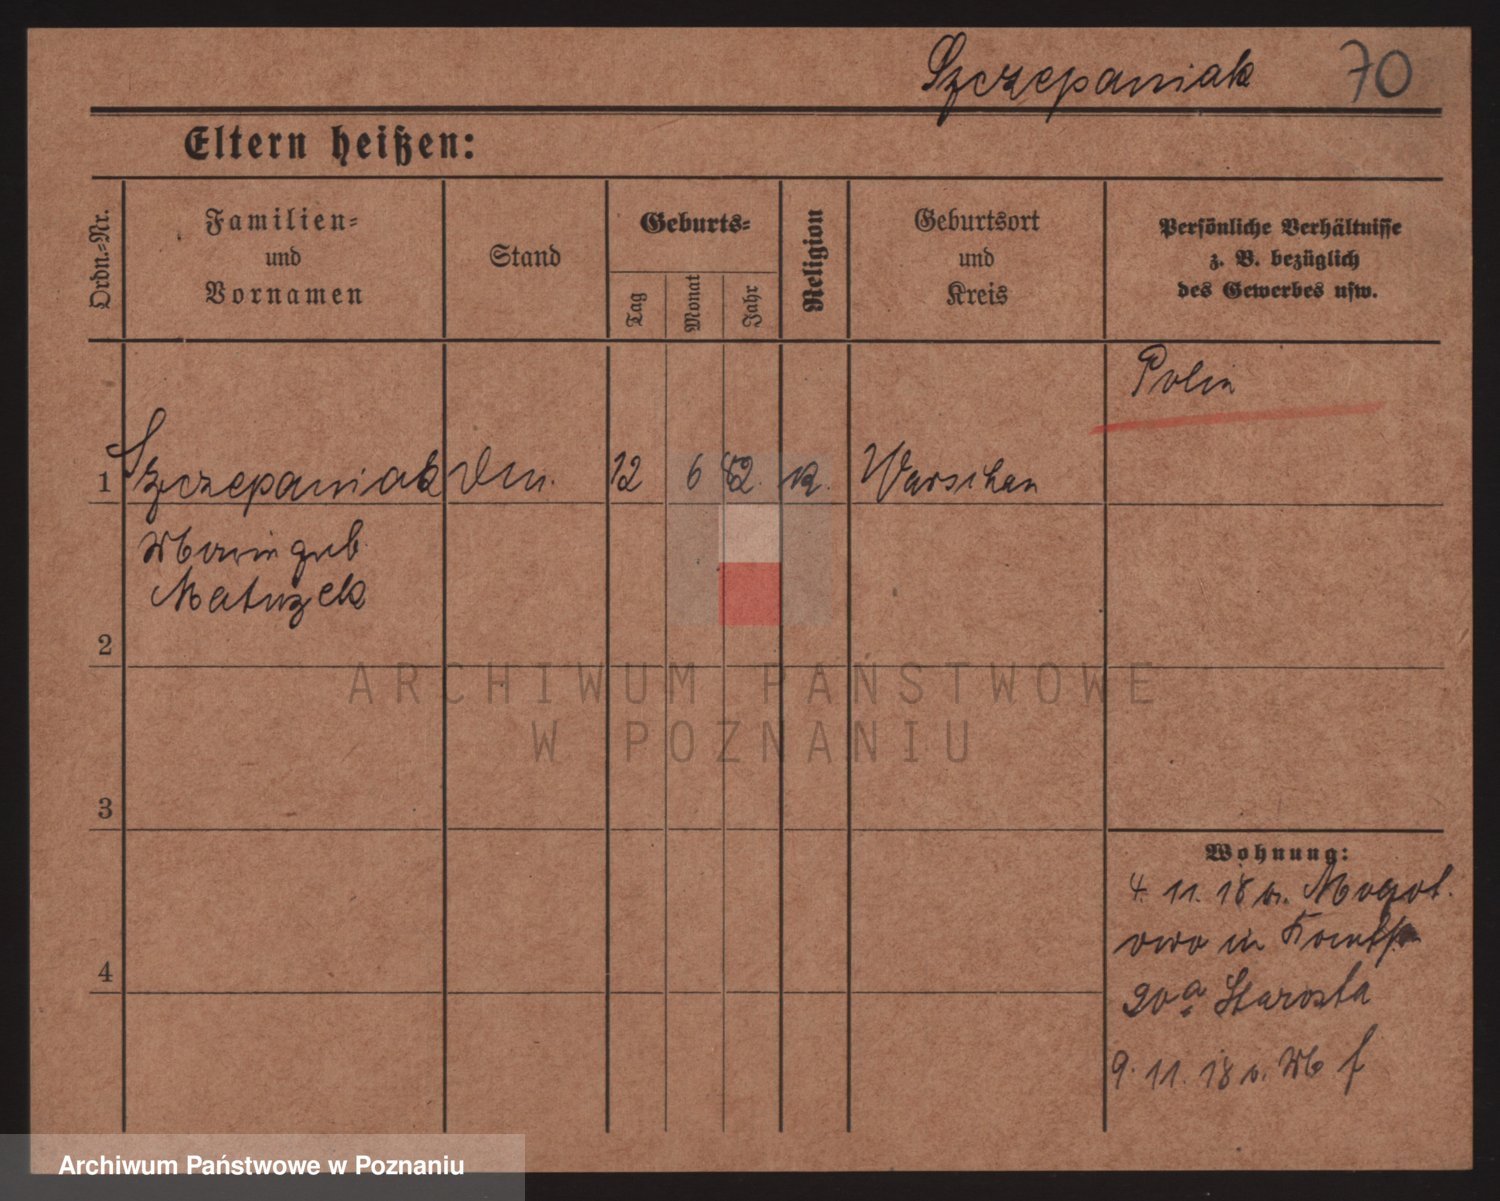 Szczepaniak 70
Eltern heißen:
Ordn.=Nr.
Familien=
und
Vornamen
Stand
Geburts=
Tag
Monat
Jahr
Religion
Geburtsort
und
Kreis
Persönliche Verhältnisse
z. B. bezüglich
des Gewerbes usw.
Polin
1 Szczepaniak 12 6 82. Warschau
geb.
Matuzek
2
3
4
Wohnung:
4. 11. 18 v.
in
20a Starosta
9. 11. 18 v.
ARCHIWUM PAŃSTWOWE
W POZNANIU
Archiwum Państwowe w Poznaniu